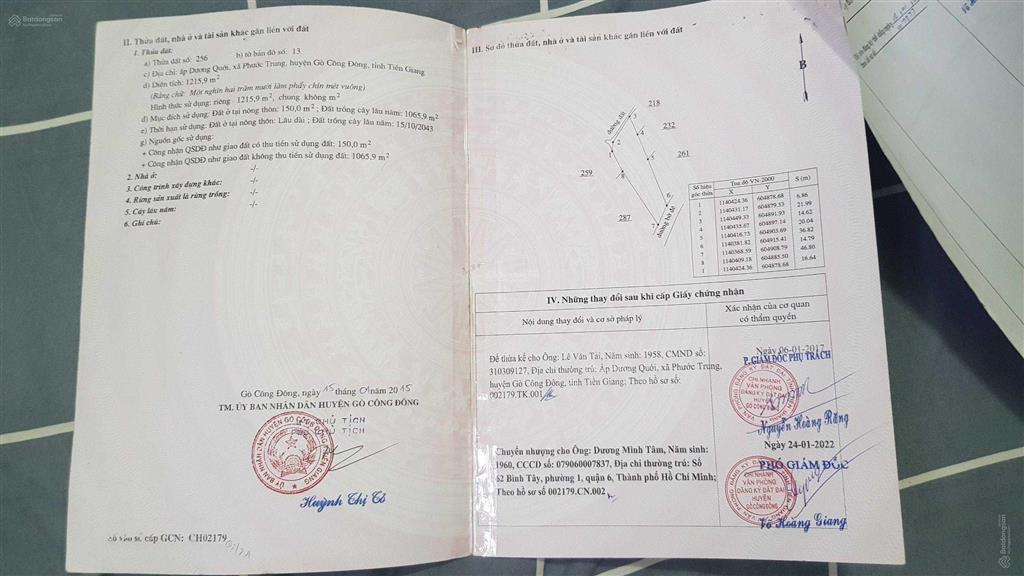 Batdongsan
II. Thửa đất, nhà ở và tài sản khác gắn liền với đất
1. Thửa đất:
a) Thửa đất số: 256 b) tờ bản đồ số: 13
c) Địa chỉ: ấp Dương Quới, xã Phước Trung, huyện Gò Công Đông, tỉnh Tiền Giang
d) Diện tích: 1215,9 m²
(Bằng chữ: Một nghìn hai trăm mười lăm phẩy chín mét vuông)
Hình thức sử dụng: riêng 1215,9 m², chung không m²
d) Mục đích sử dụng: Đất ở tại nông thôn: 150,0 m² ; Đất trồng cây lâu năm: 1065,9 m²
e) Thời hạn sử dụng: Đất ở tại nông thôn: Lâu dài ; Đất trồng cây lâu năm: 15/10/2043
g) Nguồn gốc sử dụng:
+ Công nhận QSDĐ như giao đất có thu tiền sử dụng đất: 150,0 m²
+ Công nhận QSDĐ như giao đất không thu tiền sử dụng đất: 1065,9 m²
2. Nhà ở: -/-
3. Công trình xây dựng khác: -/-
4. Rừng sản xuất là rừng trồng: -/-
5. Cây lâu năm: -/-
6. Ghi chú:
Gò Công Đông, ngày 15 tháng 01 năm 2015
TM. ỦY BAN NHÂN DÂN HUYỆN GÒ CÔNG ĐÔNG
CHỦ TỊCH
Huỳnh Thị Tỏ
số vào sổ cấp GCN: CH02179
III. Sơ đồ thửa đất, nhà ở và tài sản khác gắn liền với đất
B
218
đường đất
3
232
4
2
1
261
5
259
8
6
287
7
đường bờ đê
Số hiệu góc thửa Toạ độ VN-2000 S (m)
X Y
1 1140424.36 604878.68
6.86
2 1140431.17 604879.53
21.99
3 1140449.33 604891.93
14.62
4 1140435.67 604897.14
20.04
5 1140416.73 604903.69
36.82
6 1140381.82 604915.41
14.79
7 1140368.59 604908.79
46.80
8 1140409.18 604885.50
16.64
1 1140424.36 604878.68
IV. Những thay đổi sau khi cấp Giấy chứng nhận
Nội dung thay đổi và cơ sở pháp lý
Xác nhận của cơ quan
có thẩm quyền
Để thừa kế cho Ông: Lê Văn Tài, Năm sinh: 1958, CMND số:
310309127, Địa chỉ thường trú: Ấp Dương Quới, xã Phước Trung,
huyện Gò Công Đông, tỉnh Tiền Giang; Theo hồ sơ số:
002179.TK.001
Ngày 06-01-2017
P. GIÁM ĐỐC PHỤ TRÁCH
CHI NHÁNH
VĂN PHÒNG
ĐĂNG KÝ ĐẤT ĐAI
HUYỆN
GÒ CÔNG ĐÔNG
Nguyễn Hoàng Răng
Chuyển nhượng cho Ông: Dương Minh Tâm, Năm sinh:
1960, CCCD số: 079060007837, Địa chỉ thường trú: Số
62 Bình Tây, phường 1, quận 6, Thành phố Hồ Chí Minh;
Theo hồ sơ số 002179.CN.002
Ngày 24-01-2022
PHÓ GIÁM ĐỐC
CHI NHÁNH
VĂN PHÒNG
ĐĂNG KÝ ĐẤT ĐAI
HUYỆN
GÒ CÔNG ĐÔNG
Võ Hoàng Giang
Batdongsan